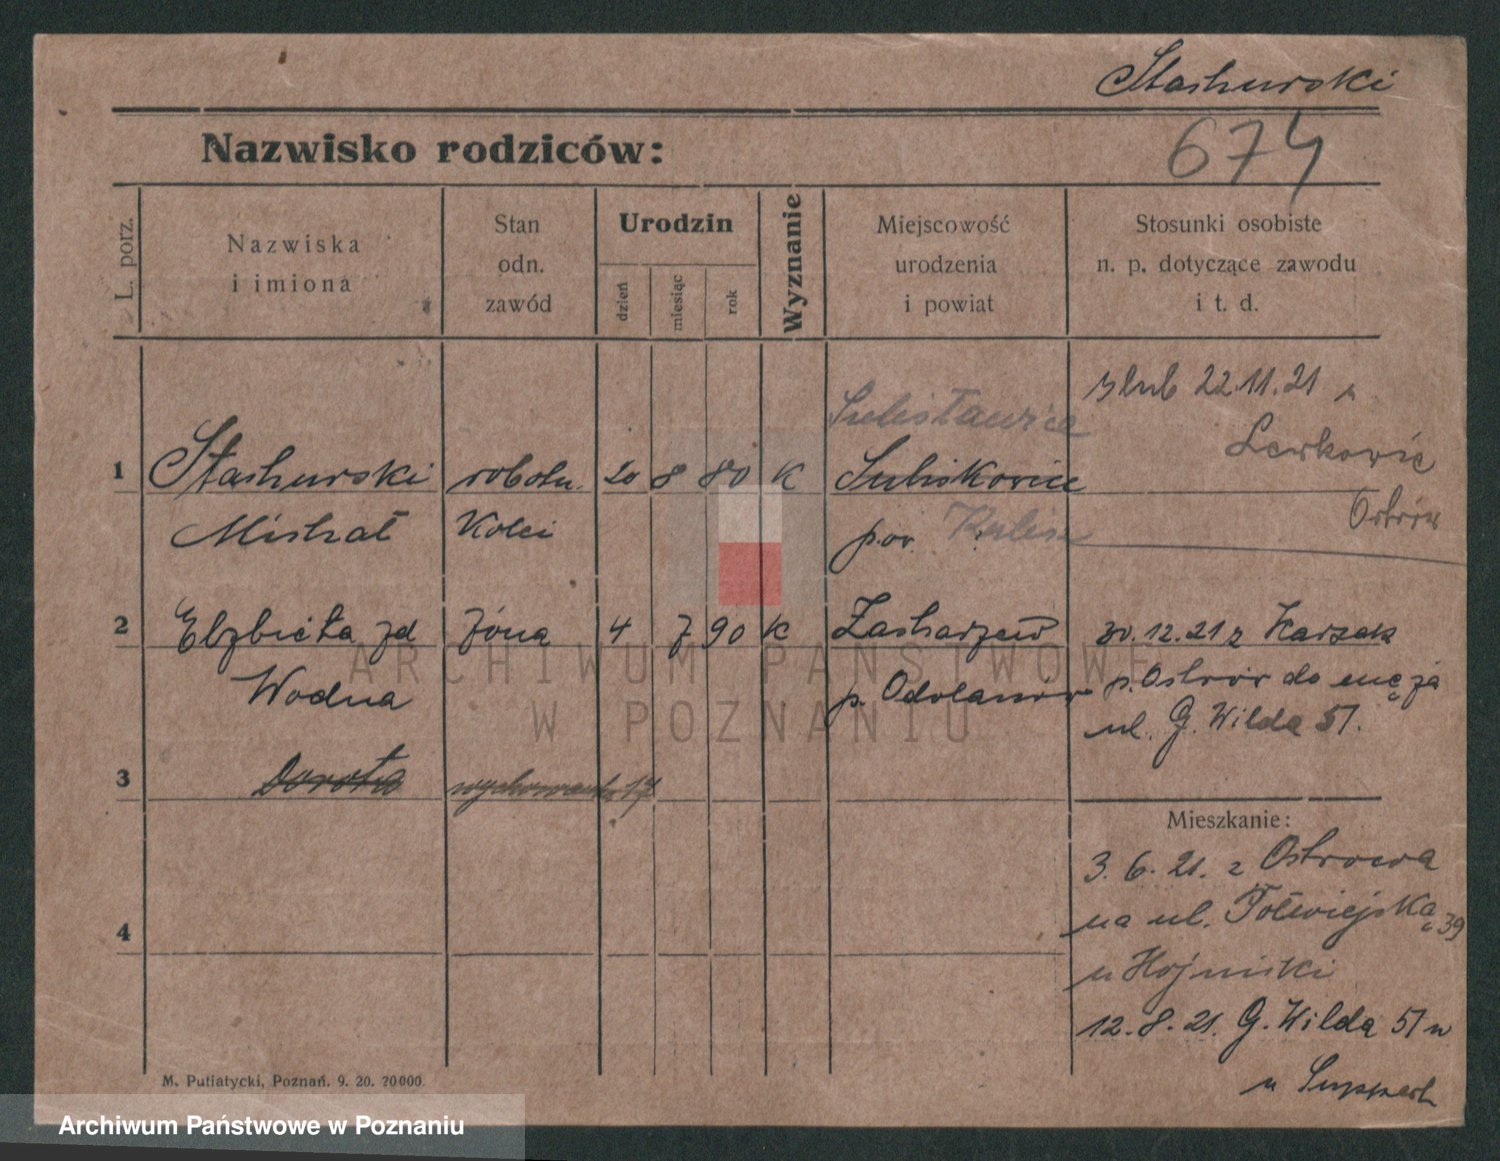 Stachurski
674
Nazwisko rodziców:
L. porz.
Nazwiska
i imiona
Stan
odn.
zawód
Urodzin
dzień
miesiąc
rok
Wyznanie
Miejscowość
urodzenia
i powiat
Stosunki osobiste
n. p. dotyczące zawodu
i t. d.
ślub 22.11.21 w
Ostrów
1 Stachurski robotn. 20 8 80 K
Michał Kolei pow. Kalisz
2 Elzbieta zd żona 4 7 90 K Zacharzew
Wodna p. Odolanow
30.12.21 z Karzak
p. Ostrów do męża
ul. G. Wilda 51.
3 Dorota
Mieszkanie:
3. 6. 21. z Ostrowa
na ul. Półwiejską 39
u Hojnicki
4
12. 8. 21. G. Wilda 51
u
M. Putiatycki, Poznań. 9. 20. 20000.
ARCHIWUM PAŃSTWOWE
W POZNANIU
Archiwum Państwowe w Poznaniu